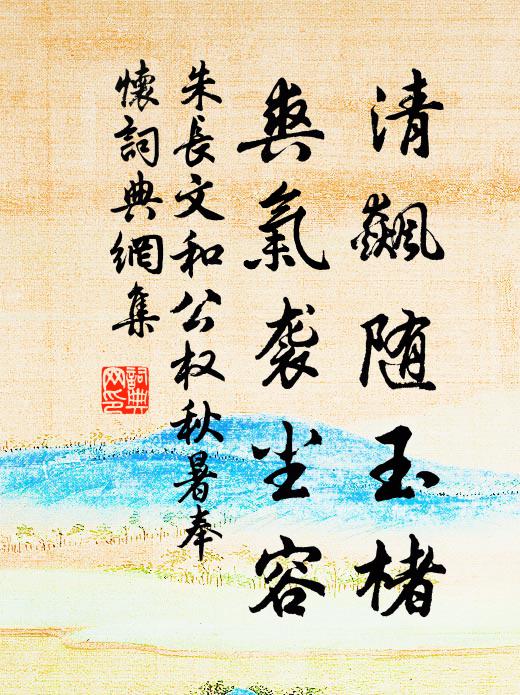 清飆随玉楮
爽氣袭尘容
朱長文和公权秋暑奉
懷詞典網集
詞典网印